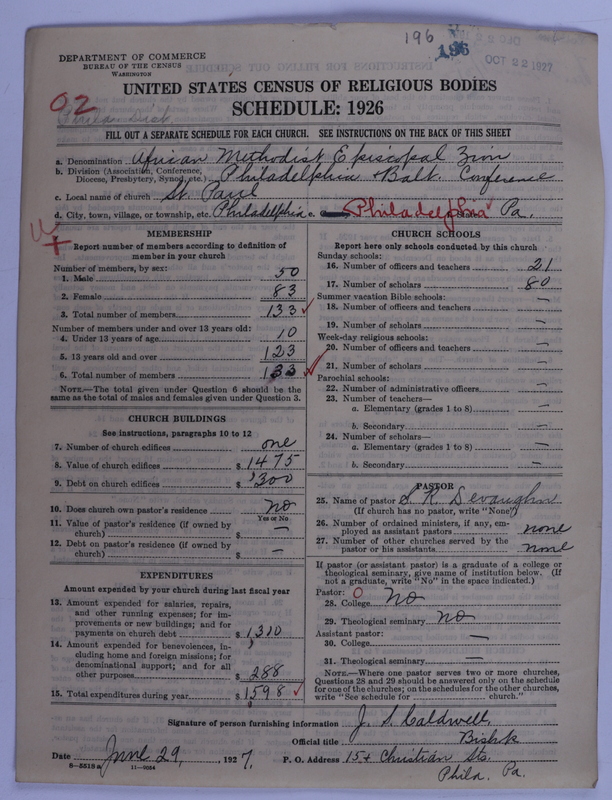 196
196
OCT 22 1927
DEPARTMENT OF COMMERCE
BUREAU OF THE CENSUS
WASHINGTON
UNITED STATES CENSUS OF RELIGIOUS BODIES
SCHEDULE: 1926
02
Phila Dist.
FILL OUT A SEPARATE SCHEDULE FOR EACH CHURCH. SEE INSTRUCTIONS ON THE BACK OF THIS SHEET
a. Denomination African Methodist Episcopal Zion
b. Division (Association, Conference, Diocese, Presbytery, Synod, etc.) Philadelphia & Balt. Conference
c. Local name of church St. Paul
d. City, town, village, or township, etc. Philadelphia e. Philadelphia Pa.
MEMBERSHIP
Report number of members according to definition of
member in your church
Number of members, by sex:
1. Male 50
2. Female 83
3. Total number of members 133
Number of members under and over 13 years old:
4. Under 13 years of age 10
5. 13 years old and over 123
6. Total number of members 133
NOTE.—The total given under Question 6 should be
same as the total of males and females given under Question 3.
CHURCH BUILDINGS
See instructions, paragraphs 10 to 12
7. Number of church edifices one
8. Value of church edifices $ 1475
9. Debt on church edifices $ 300
10. Does church own pastor's residence? No
Yes or No
11. Value of pastor's residence (if owned by
church) $ —
12. Debt on pastor's residence (if owned by
church) $ —
EXPENDITURES
Amount expended by your church during last fiscal year
13. Amount expended for salaries, repairs,
and other running expenses; for im-
provements or new buildings; and for
payments on church debt $ 1310
14. Amount expended for benevolences, in-
cluding home and foreign missions; for
denominational support; and for all
other purposes $ 288
15. Total expenditures during year $ 1598
CHURCH SCHOOLS
Report here only schools conducted by this church
Sunday schools:
16. Number of officers and teachers 21
17. Number of scholars 80
Summer vacation Bible schools:
18. Number of officers and teachers —
19. Number of scholars —
Week-day religious schools:
20. Number of officers and teachers —
21. Number of scholars —
Parochial schools:
22. Number of administrative officers —
23. Number of teachers—
a. Elementary (grades 1 to 8) —
b. Secondary —
24. Number of scholars—
a. Elementary (grades 1 to 8) —
b. Secondary —
PASTOR
25. Name of pastor S. R. Devaughn
(If church has no pastor, write "None")
26. Number of ordained ministers, if any, em-
ployed as assistant pastors none
27. Number of other churches served by the
pastor or his assistants none
If pastor (or assistant pastor) is a graduate of a college or
theological seminary, give name of institution below. (If
not a graduate, write "No" in the space indicated.)
Pastor: 0
28. College No
29. Theological seminary No
Assistant pastor:
30. College —
31. Theological seminary —
NOTE.—Where one pastor serves two or more churches,
Questions 28 and 29 should be answered only on the schedule
for one of the churches; on the schedules for the other churches,
write "See schedule for church."
Signature of person furnishing information J. S. Caldwell
Official title Bishop
Date June 29, 1927. P. O. Address 15 & Christian Sts.
8—5518a 11—9034
Phila. Pa.